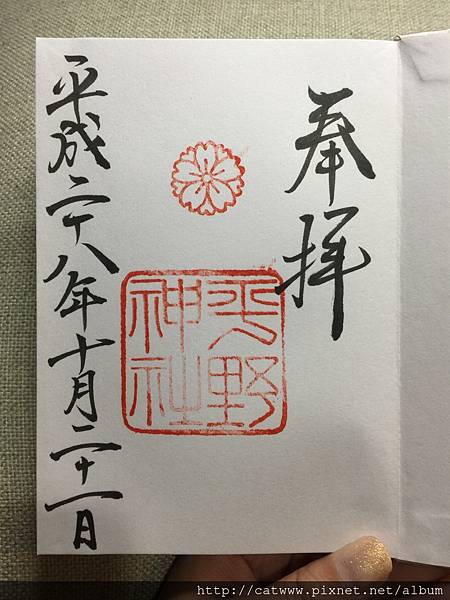 奉拝
平野
神社
平成二十八年十月二十一日
http://catwww.pixnet.net/album